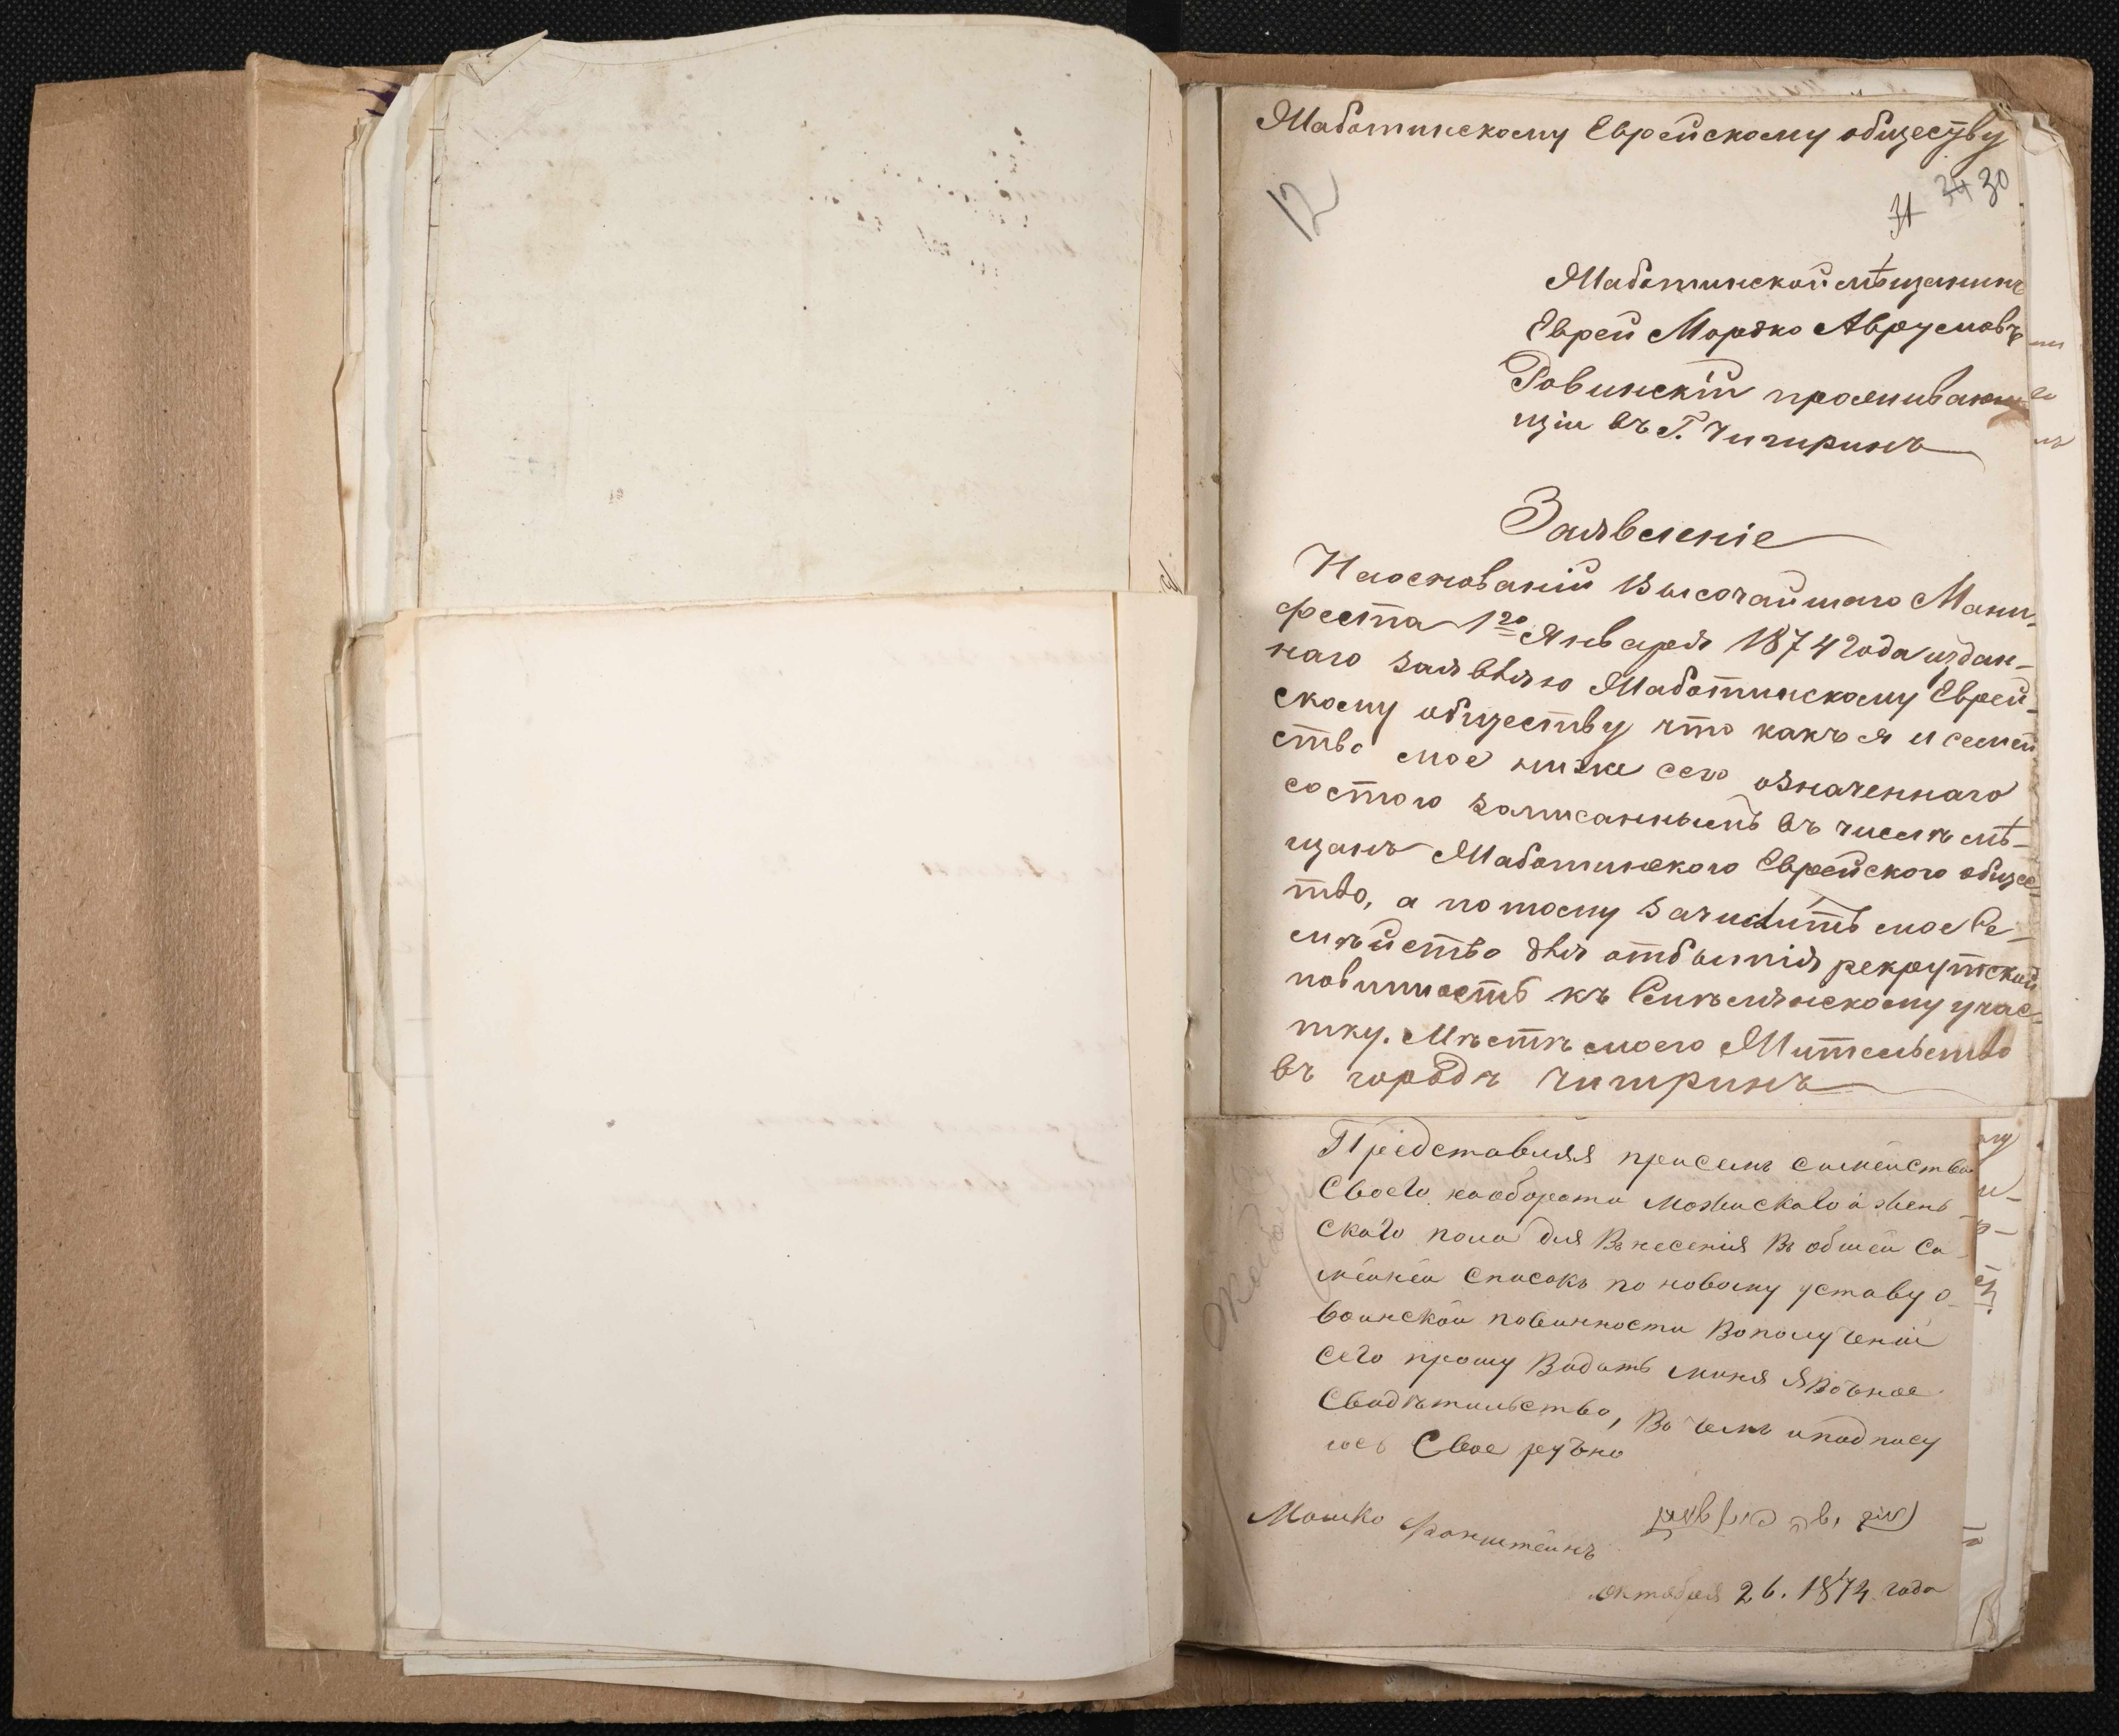 Жаботинскому Еврейскому обществу
12
31 34 30
Жаботинской мѣщанинъ
Еврей Мордко Аврумовъ
Ровинскій проживаю
щій въ Г. Чигиринъ
Заявленіе
Наоснованій Высочайшаго Мани-
феста 1го Января 1874 года издан-
наго заявляю Жаботинскому Еврей-
скому обществу что какъ я и семей
ство мое ниже сего означеннаго
состою записаннымъ въ числѣ мѣ-
щанъ Жаботинского Еврейского общес-
тво, а потому зачислить мое Се-
мѣйство для отбытія рекрутской
повинность къ Смѣлянскому учас-
тку. Мѣстѣ моего Жительство
въ городѣ Чигиринъ
Представляя присемъ симействa
Своего наоборотѣМожискаво и жень
скаго пола для Внесенія въ обшей Си
мейнай списокъ по новому уставу о
воинской повинности Вополученій
сего прошу Видать миня Явочное
Свидѣтильство, Во чемъ иподпису
юсь Свое ручно
Мошко
октобря 26. 1874 года